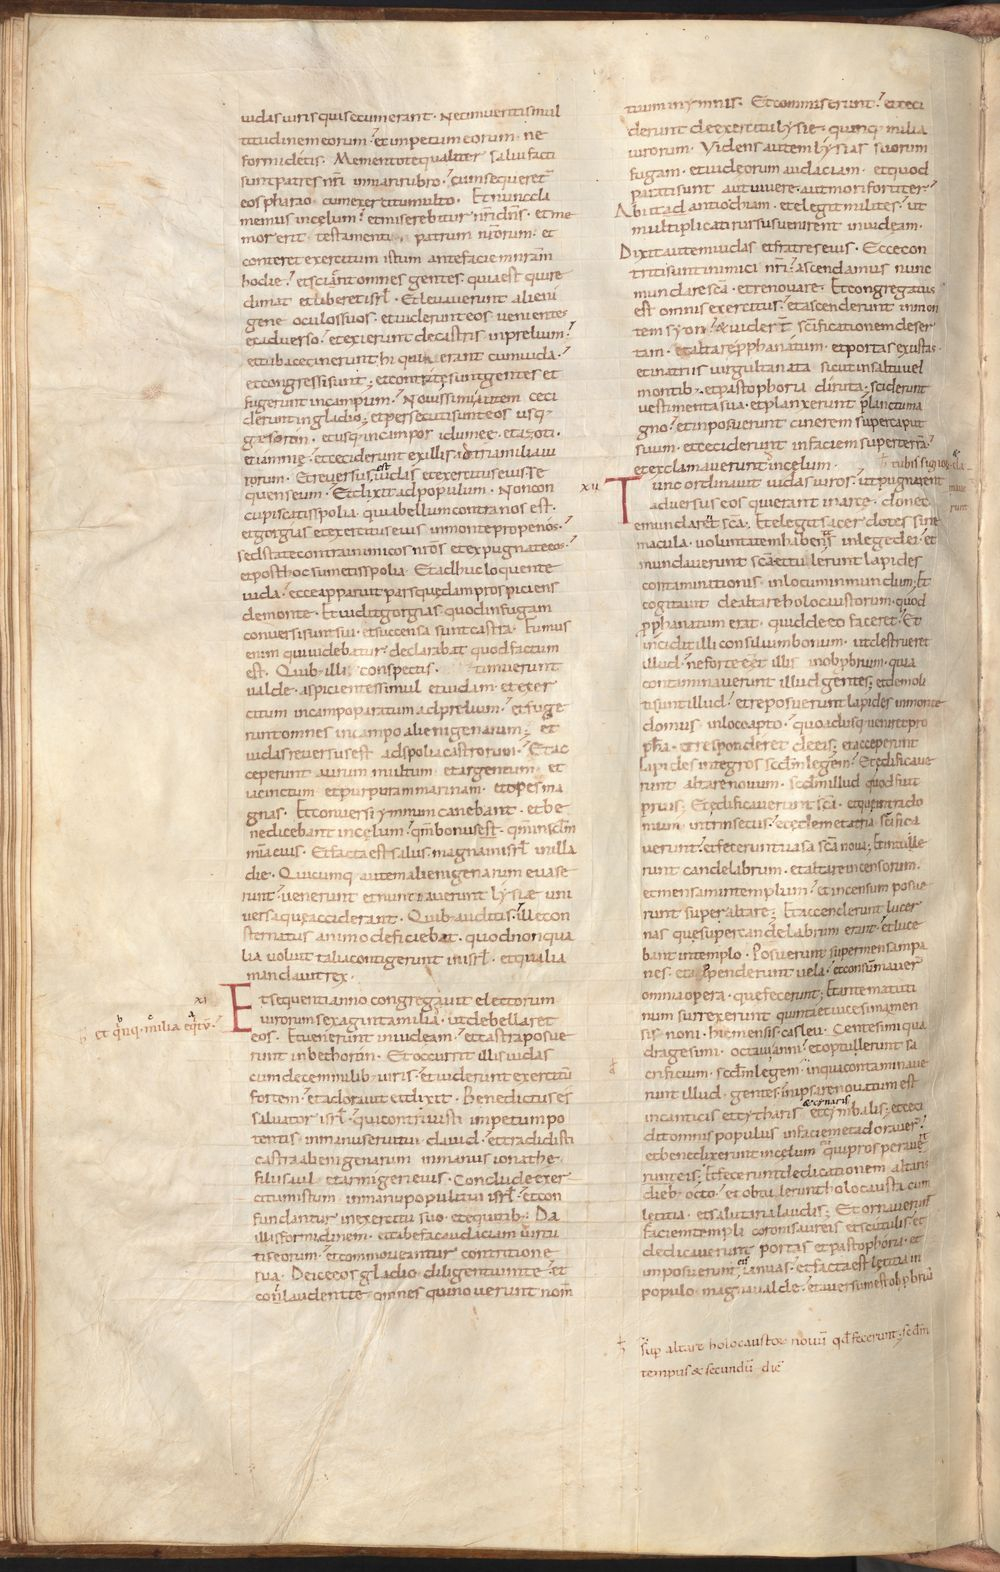 iudas uiris qui secum erant. Ne timueritis mul
titudinem eorum. et impetum eorum. ne
formidetis. Mementote qualiter salui facti
sunt patres nr̄i in mari rubro. cum sequeret᷑
eos pharao cum exercitu multo. Et nunc cla
memus in cęlum. et miserebitur nr̄i dn̄s. et me
mor erit testamenti patrum nr̄orum. et
conteret exercitum istum ante faciem nr̄am
hodie. et scīant omnes gentes. quia est qui re
dimat et liberet isr̄l. Et leuauerunt alieni
gene oculos suos. et uiderunt eos uenientes
ex aduerso. et exierunt de castris in prelium.
et tuba cecinerunt hi qui erant cum iuda.
et congressi sunt. et contrite sunt gentes et
fugerunt in campum. Nouissimi autem ceci
derunt in gladio. et persecuti sunt eos usq;
gaseron. et usq; in campos idumee. et azoti.
et iamnię. et ceciderunt ex illis ad tria milia ui
rorum. Et reuersus est iudas et exercitus eius se
quens eum. Et dixit ad populum. Non con
cupiscatis spolia. quia bellum contra nos est.
et gorgias et exercitus eius in monte prope nos.
sed state contra inimicos nr̄os et expugnate eos.
et post hoc sumetis spolia. Et adhuc loquente
iuda. ecce apparuit pars quędam prospiciens
de monte. Et uidit gorgias quod in fugam
conuersi sunt sui. et succensa sunt castra. Fumus
enim qui uidebatur declarabat quod factum
est. Quib; illi conspectis. timuerunt
ualde. aspicientes simul et iudam. et exer
citum in campo paratum ad prelium. et fuge
runt omnes in campo alienigenarum. et
iudas reuersus est ad spolia castrorum. Et ac
ceperunt aurum multum et argentum. et
iacinctum et purpuram marinam. et opes ma
gnas. Et conuersi ymnum canebant. et be
nedicebant in cęlum. qm̄ bonus est. qm̄ in scl̄m
mīa eius. Et facta est salus magna in isr̄l in illa
die. Quicumq; autem alienigenarum euase
runt. uenerunt et nuntiauerunt lysiæ uni
uersa quę acciderant. Quib; auditis. ille con
sternatus animo deficiebat. quod non qua
lia uoluit talia contigerunt in isr̄l. et qualia
mandauit rex.
xi
Et sequenti anno congregauit electorum
uirorum sexaginta milia. ut debellaret
et quinq; milia equitū.
eos. Et uenerunt in iudeam. et castra posue
runt in bethoron. Et occurrit illis iudas
cum decem milib; uiris. et uiderunt exercitū
fortem. et adorauit et dixit. Benedictus es
saluator isr̄l. qui contriuisti impetum po
tentis. in manu serui tui dauid. et tradidisti
castra alienigenarum in manus ionathe
filii saul et armigeri eius. Conclude exer
citum istum in manu populi tui isr̄l. et con
fundantur in exercitu suo et equitib;. Da
illis formidinem. et tabefac audaciam uirtu
tis eorum. et commoueantur contritione
sua. Deice eos gladio diligentium te. et
conlaudent te omnes qui nouerunt nom̄
tuum in ymnis. Et commiserunt. et ceci
derunt de exercitu lysie. quinq; milia
uirorum. Videns autem lysias suorum
fugam. et iudeorum audaciam. et quod
parati sunt aut uiuere. aut mori fortiter.
Abiit ad antiochiam. et elegit milites. ut
multiplicati rursus uenirent in iudęam.
Dixit autem iudas et fratres eius. Ecce con
triti sunt inimici nr̄i. ascendamus nunc
mundare scā. et renouare. Et congregatus
est omnis exercitus. et ascenderunt in mon
tem syon. & uider̄t scīficationem deser
tam. et altare p̱phanatum. et portas exustas.
et in atriis uirgulta nata sicut in saltu uel
montib;. et pastophoria diruta. sciderunt
uestimenta sua. et planxerunt planctu ma
gno. et inposuerunt cinerem super caput
suum. et ceciderunt in faciem super terrā.
et exclamauerunt in cęlum.
tubis signorū. et cla
maue
runt
xii
Tunc ordinauit iudas uiros. ut pugnarent
aduersus eos qui erant in arce. donec
emundarēt scā. Et elegit sacerdotes sine
macula. uoluntatem habentes in lege dei. et
mundauerunt scā. et tulerunt lapides
contaminationis in locum inmundum. Et
cogitauit de altare holocaustorum. quod
p̱phanatum erat. quid de eo faceret. Et
incidit illi consilium bonum. ut destrueret
illud. ne forte esset illis in obprobrium. quia
contaminauerunt illud gentes. et demoli
ti sunt illud. et reposuerunt lapides in monte
domus in loco apto. quoadusq; ueniret pro
ph̄a. et responderet de eis. et acceperunt
lapides integros scd̄m legem. Et edificaue
runt altare nouum. scd̄m illud quod fuit
prius. Et edificauerunt scā. et quę intra do
mum intrinsecus. et ędem et atria scīfica
uerunt. et fecerunt uasa scā noua. Et intule
runt candelabrum. et altare incensorum.
et mensam in templum. et incensum posue
runt super altare. Et accenderunt lucer
nas que super candelabrum erant. et luce
bant in templo. Posuerunt super mensam pa
nes. et appenderunt uela. et consummauer̄
omnia opera. que fecerunt. Et ante matuti
num surrexerunt quinta et uicesima men
sis noni. hic mensis casleu. Centesimi qua
dragesimi octaui anni. et optulerunt sa
crificium. scd̄m legem. in qua contaminaue
runt illud gentes. in ipsa renouatum est
in canticis et cytharis & cynaris et cymbalis. et ceci
dit omnis populus in faciem et adorauer̄.
et benedixerunt in cęlum qui prosperauit
runt eis. Et fecerunt dedicationem altaris
dieb; octo. et obtulerunt holocausta cum
letitia. et salutaria laudis. Et ornauerunt
faciem templi coronis aureis et scutulis. et
dedicauerunt portas et pastophoria. et
imposuerunt eis ianuas. et facta est lętitia in
populo magna ualde. et auersum est obprobriū
sup̱ altare holocaustoꝝ nouū qd̄ fecerunt. scd̄m
tempus & secundū diē